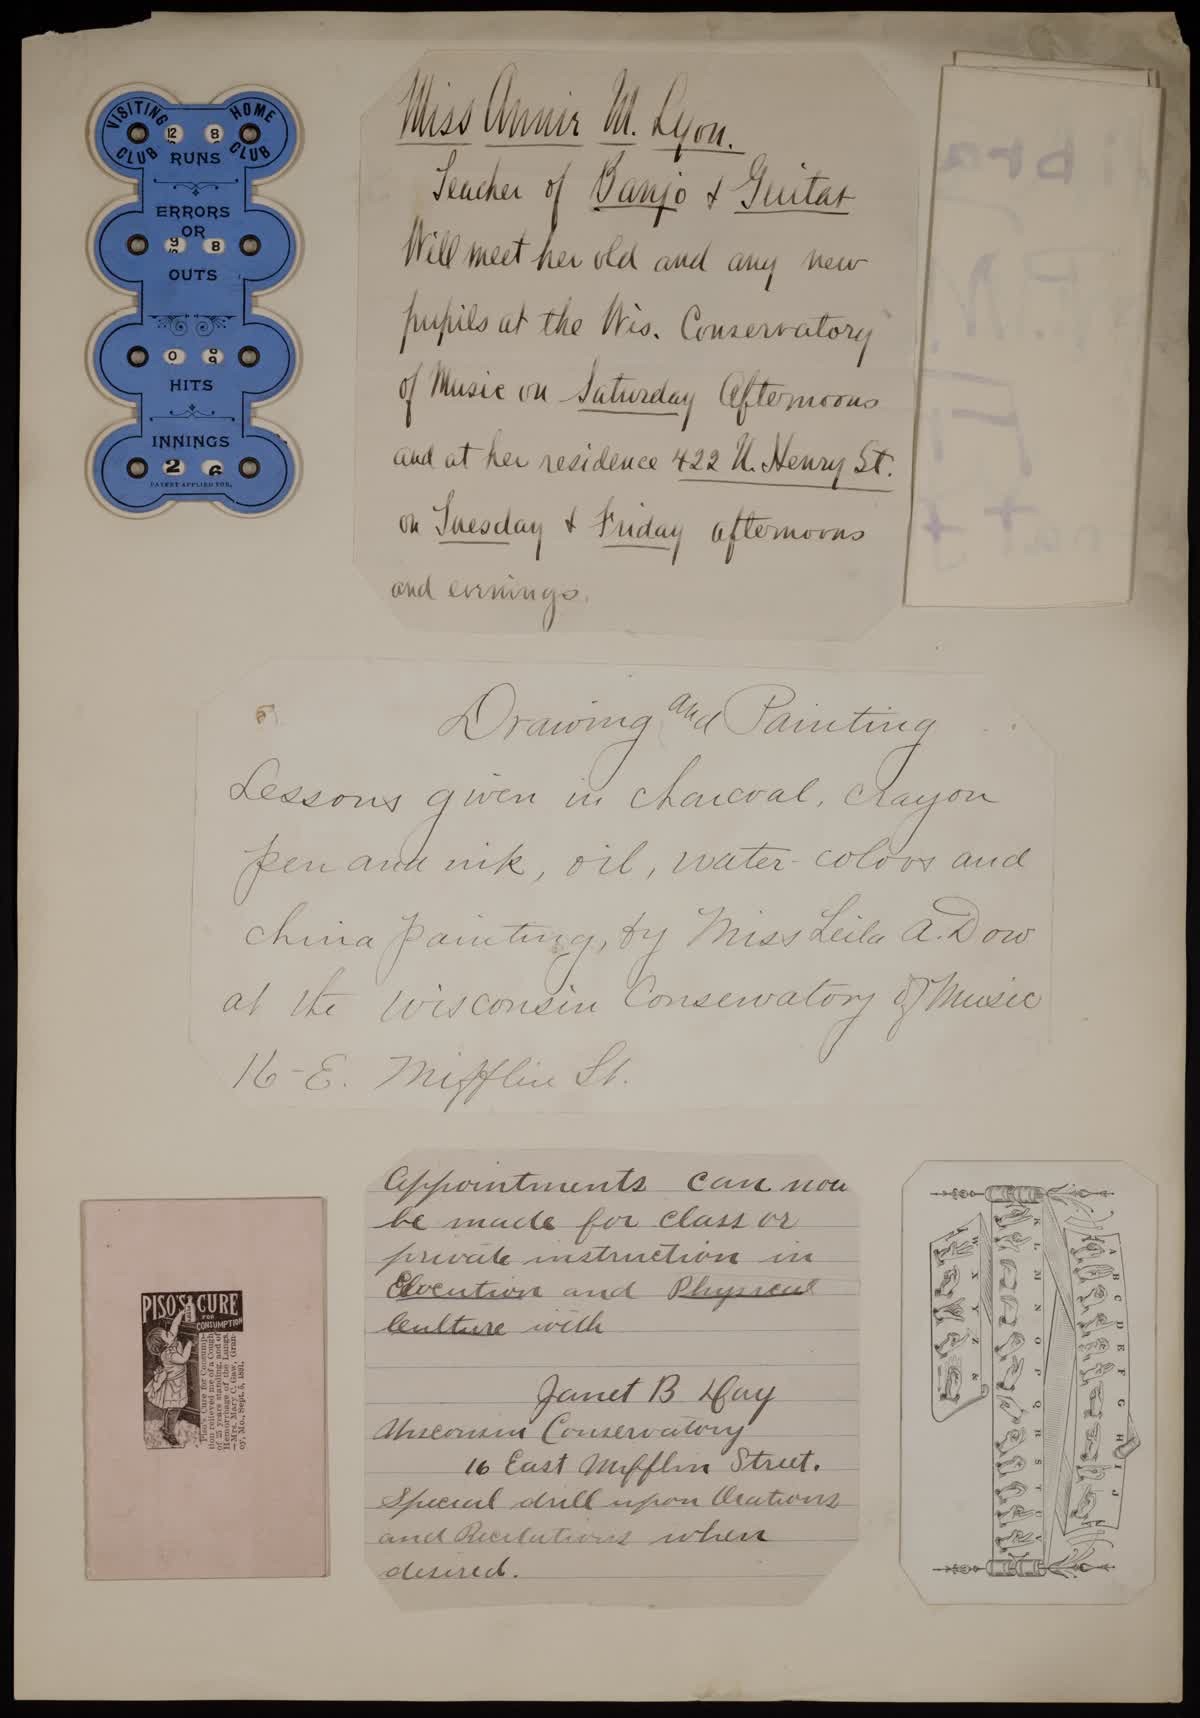 VISITING CLUB
HOME CLUB
12 8
RUNS
ERRORS
OR
9 8
OUTS
0 9
HITS
INNINGS
2 6
PATENT APPLIED FOR.
Miss Annie M. Lyon.
Teacher of Banjo & Guitar
Will meet her old and any new
pupils at the Wis. Conservatory
of Music on Saturday Afternoons
and at her residence 422 N. Henry St.
on Tuesday & Friday afternoons
and evenings.
Drawing and Painting
Lessons given in charcoal, crayon
pen and ink, oil, water-colors and
china painting, by Miss Leila A. Dow
at the Wisconsin Conservatory of Music
16 - E. Mifflin St.
PISO'S CURE
FOR
CONSUMPTION
Piso's Cure for Consump-
tion relieved me of a Cough
of 25 years standing, and of
Hemorrhage of the Lungs.
—Mrs. Mary C. Gaw, Gran-
by, Mo., Sept. 5, 1891.
Appointments can now
be made for class or
private instruction in
Elocution and Physical
Culture with
Janet B Day
Wisconsin Conservatory
16 East Mifflin Street.
Special drill upon Orations
and Recitations when
desired.
A B C D E F G H I J
K L M N O P Q R S T U V
W X Y Z &